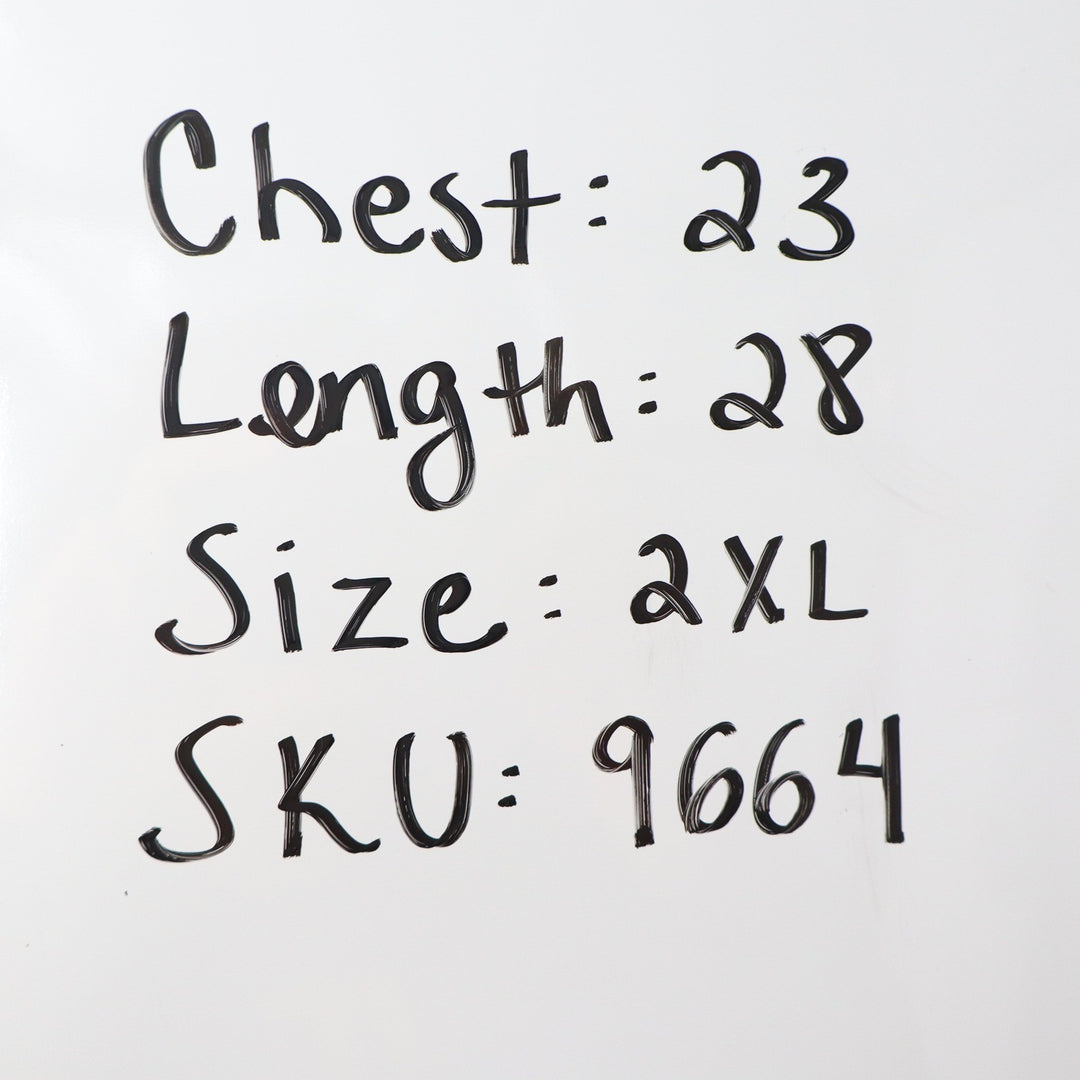 Chest: 23
Length: 28
Size: 2XL
SKU: 9664